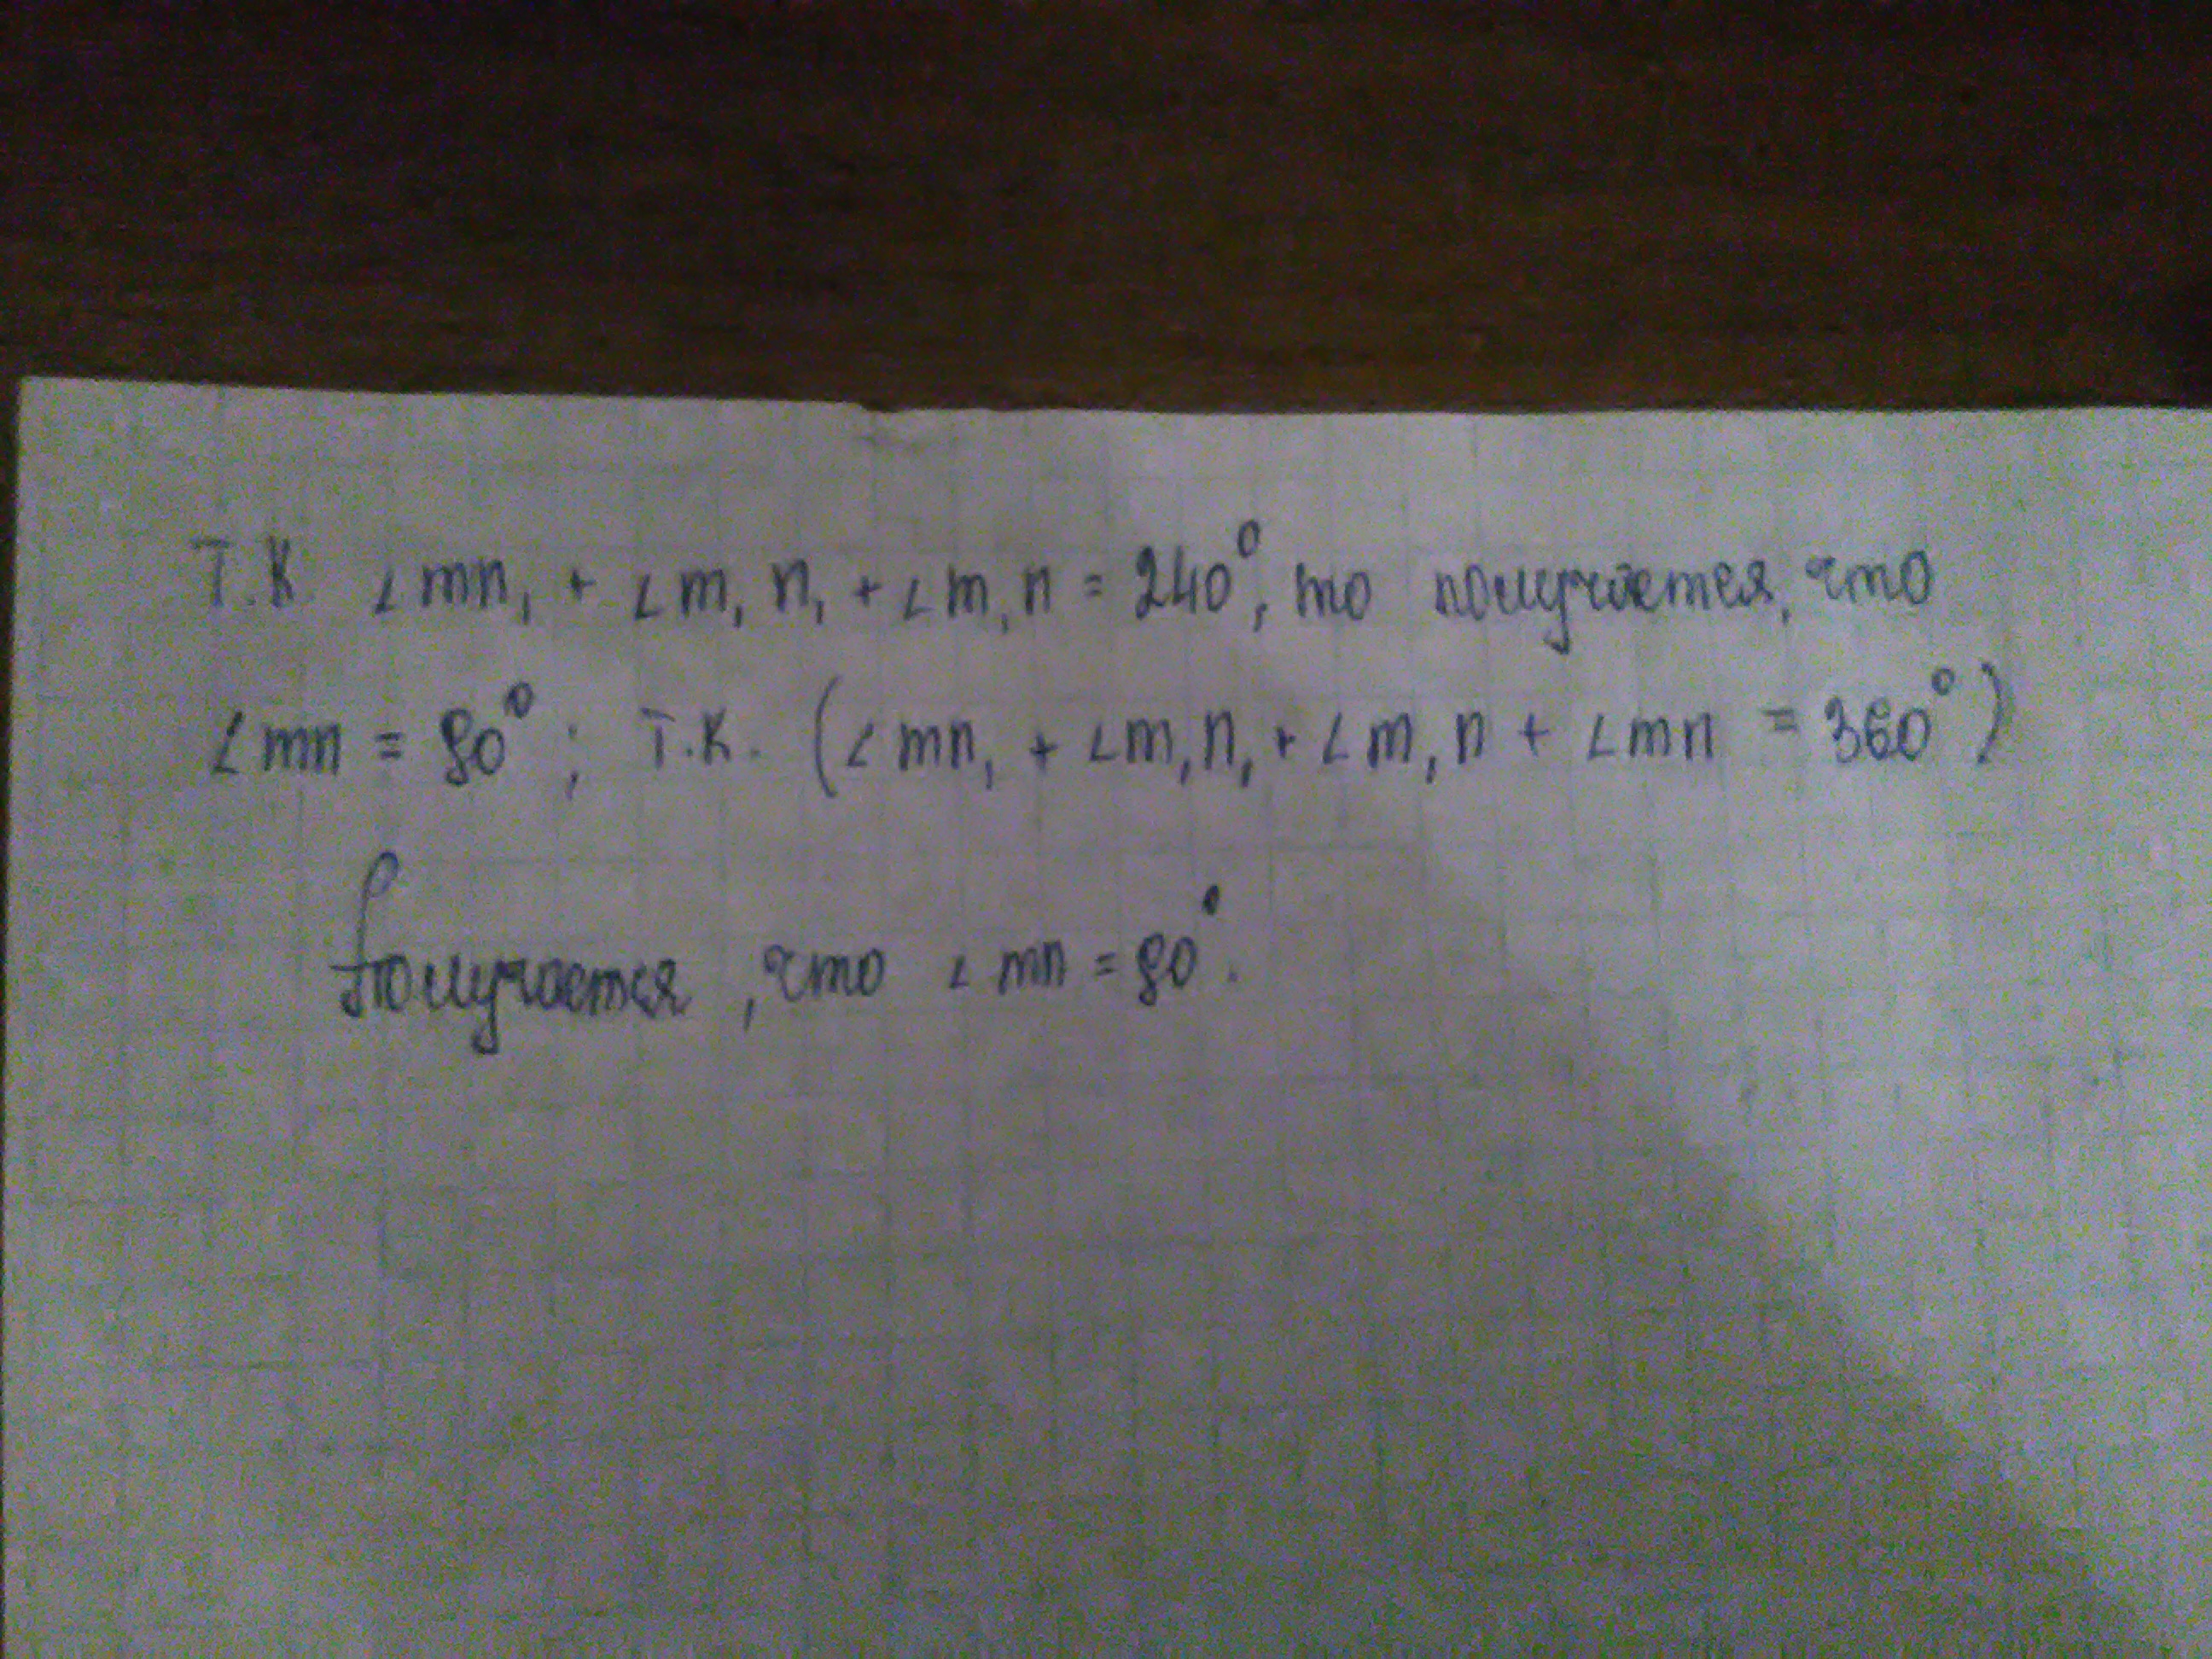 Т.К. ∠mn₁ + ∠m₁n₁ + ∠m₁n = 240°, то получается, что
∠mn = 80°; Т.К. (∠mn₁ + ∠m₁n₁ + ∠m₁n + ∠mn = 360°)
Получается, что ∠mn = 80°.